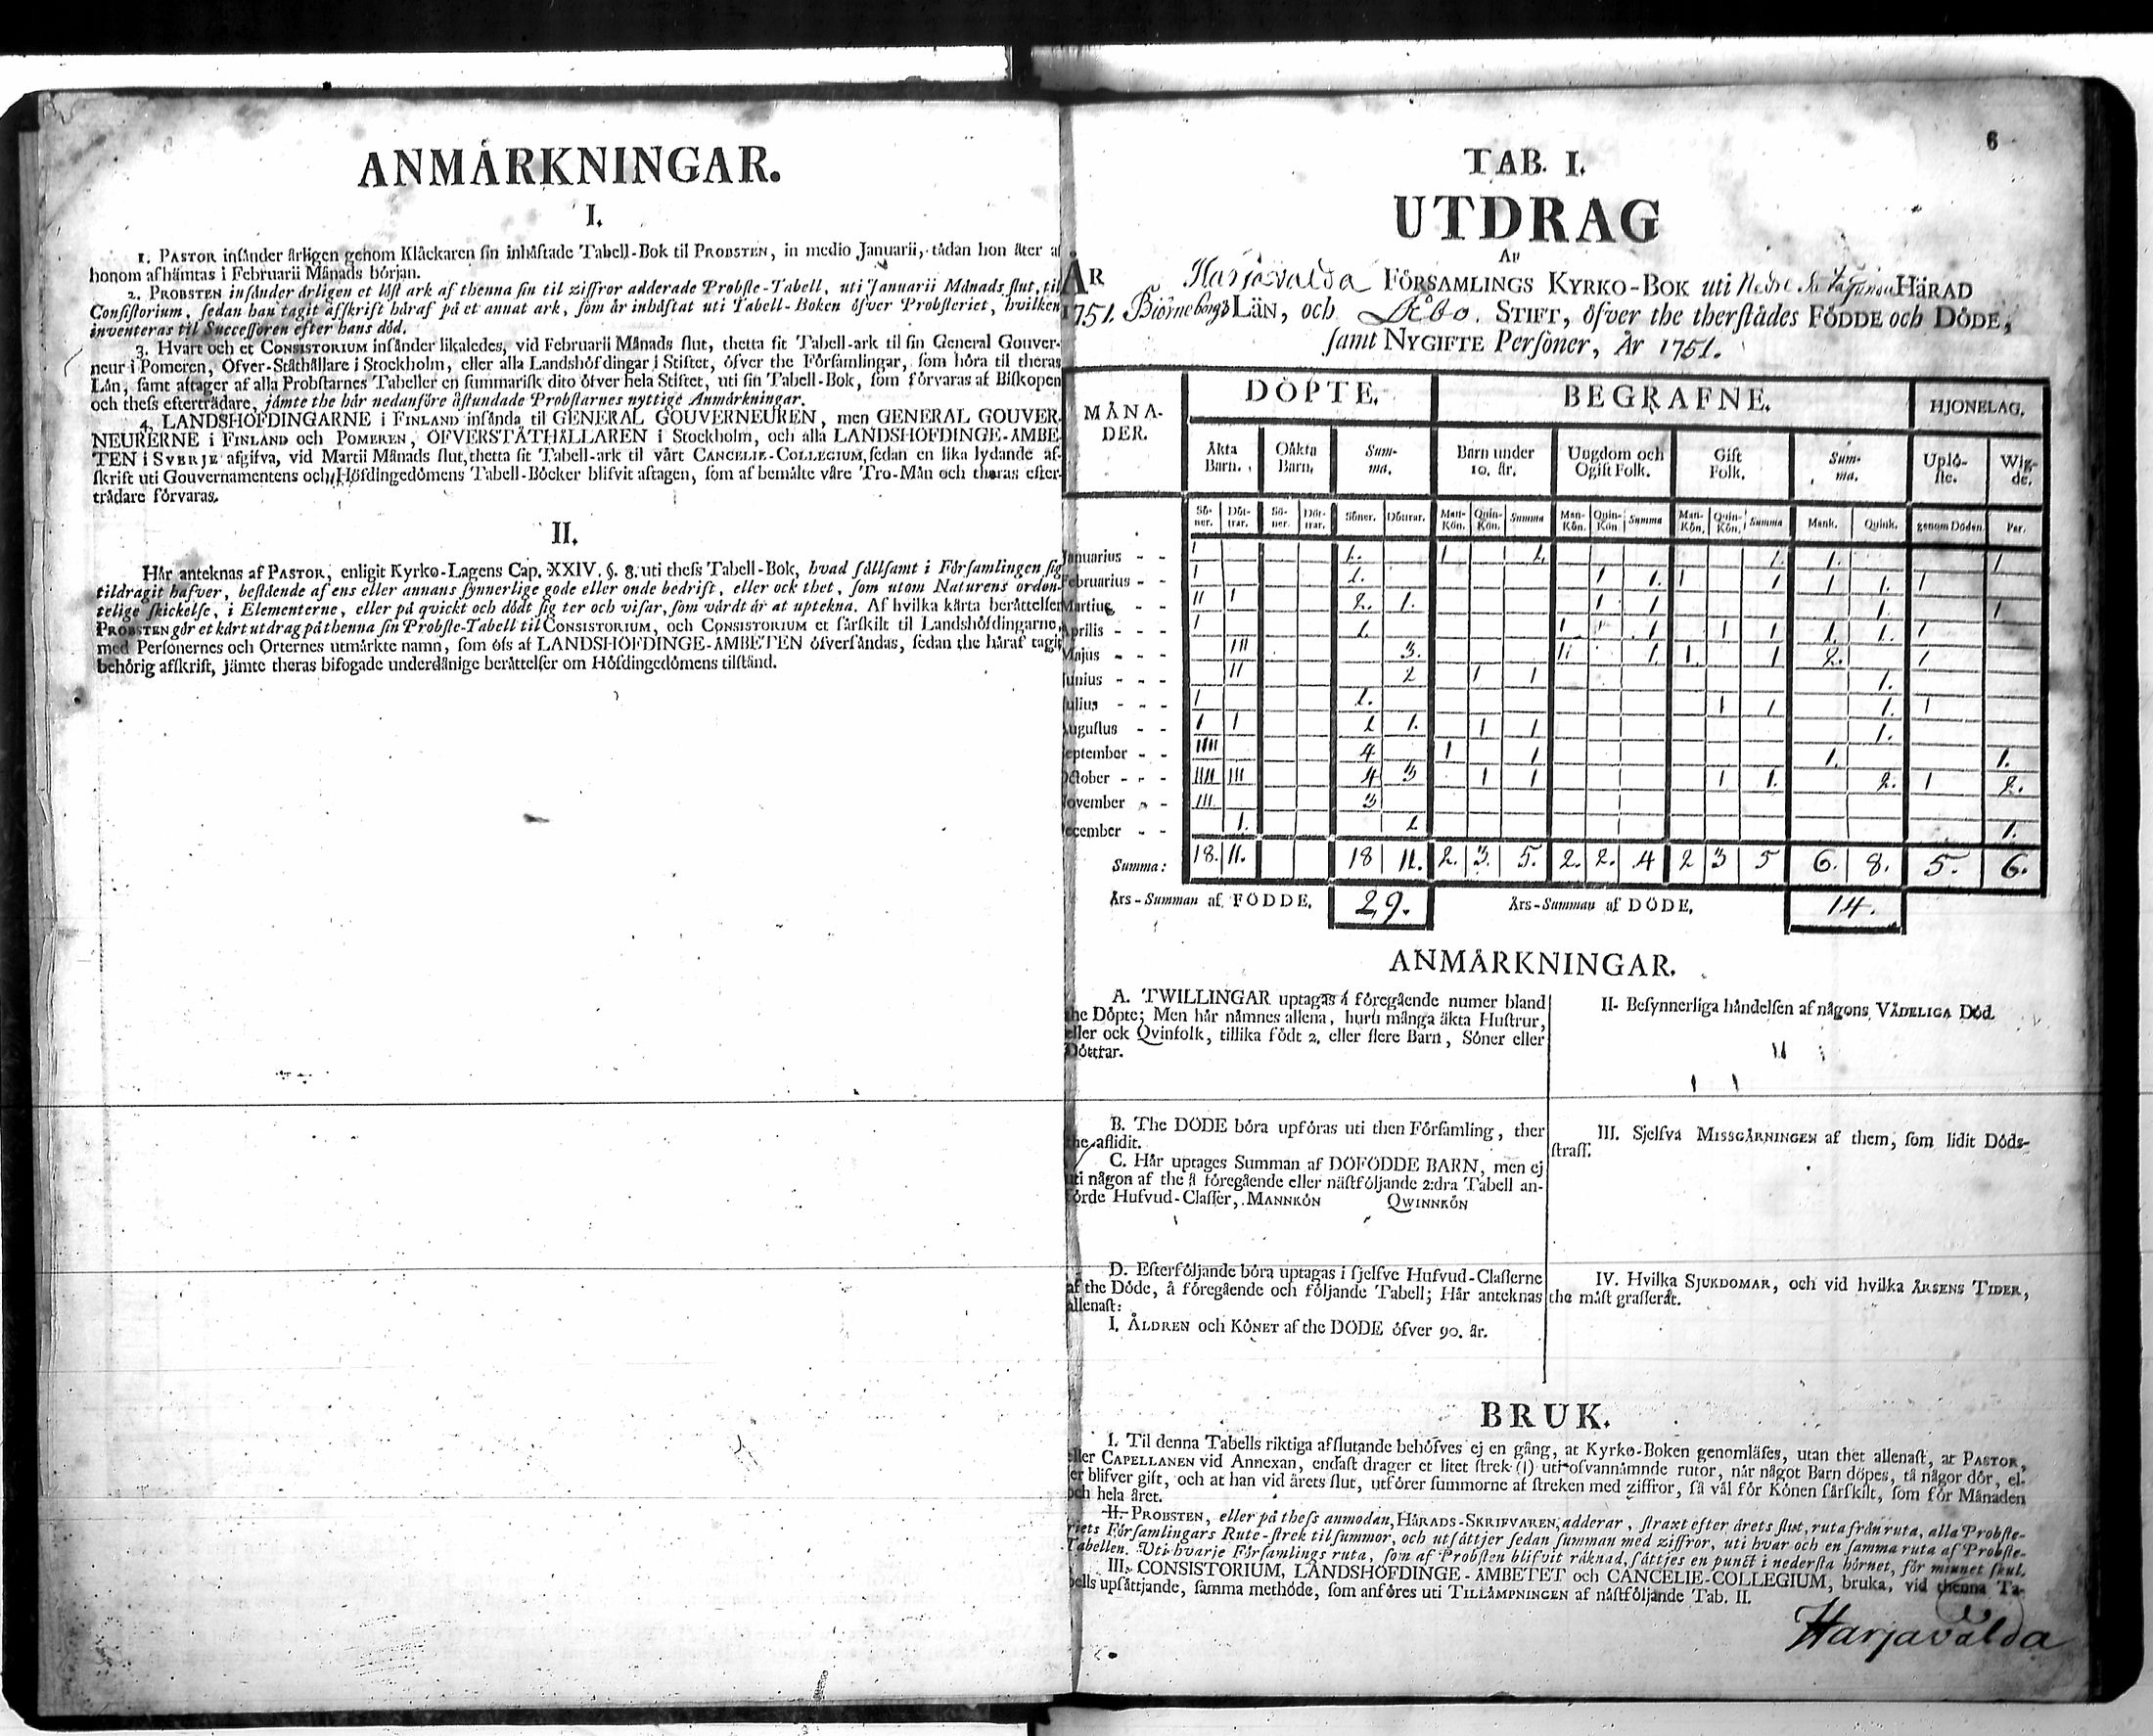 ANMÅRKNINGAR.
I.
1. PASTOR insånder årligen genom Klåckaren sin inhåftade Tabell-Bok til PROBSTEN, in medio Januarii, tådan hon åter af
honom afhåmtas i Februarii Månads början.
2. PROBSTEN insånder årligen et löst ark af thenna sin til ziffror adderade Probste-Tabell, uti Januarii Månads slut, til
Consistorium, sedan han tagit afskrift håraf på et annat ark, som år inhåftat uti Tabell-Boken öfver Probsteriet, hvilken
inventeras til Successoren efter hans död.
3. Hvart och et CONSISTORIUM insånder likaledes, vid Februarii Månads slut, thetta sit Tabell-ark til sin General Gouver-
neur i Pomeren, Öfver-Ståthållare i Stockholm, eller alla Landshöfdingar i Stiftet, öfver the Församlingar, som höra til theras
Lån, samt aftager af alla Probstarnes Tabeller en summarisk dito öfver hela Stiftet, uti sin Tabell-Bok, som förvaras af Biskopen
och thess eftertrådare, jåmte the hår nedanföre åstundade Probstarnes nyttige Anmårkningar.
4. LANDSHÖFDINGARNE i FINLAND insånda til GENERAL GOUVERNEUREN, men GENERAL GOUVER-
NEURERNE i FINLAND och POMEREN, ÖFVERSTÅTHÅLLAREN i Stockholm, och alla LANDSHÖFDINGE-ÅMBE-
TEN i SVERJE afgifva, vid Martii Månads slut, thetta sit Tabell-ark til vårt CANCELIE-COLLEGIUM, sedan en lika lydande af-
skrift uti Gouvernamentens och Höfdingedömens Tabell-Böcker blifvit aftagen, som af bemålte våre Tro-Mån och theras efter-
trådare förvaras.
II.
Hår anteknas af PASTOR, enligit Kyrko-Lagens Cap. XXIV. §. 8. uti thess Tabell-Bok, hvad sållsamt i Församlingen sig
tildragit hafver, bestående af ens eller annans synnerlige gode eller onde bedrift, eller ock thet, som utom Naturens orden-
telige skickelse, i Elementerne, eller på qvickt och dödt sig ter och visar, som vårdt år at uptekna. Af hvilka kårta beråttelser
PROBSTEN gör et kårt utdrag på thenna sin Probste-Tabell til CONSISTORIUM, och CONSISTORIUM et sårskilt til Landshöfdingarne,
med Personernes och Orternes utmårkte namn, som öfs af LANDSHÖFDINGE-ÅMBETEN öfversåndas, sedan the håraf tagit
behörig afskrift, jåmte theras bifogade underdånige beråttelser om Höfdingedömens tilstånd.
6
TAB. I.
UTDRAG
AF
ÅR Harjavalda FÖRSAMLINGS KYRKO-BOK uti Nedre HÅRAD
1751. Biörneborgs LÅN, och Åbo STIFT, öfver the therstådes FÖDDE och DÖDE,
samt NYGIFTE Personer, År 1751.
MÅNA-DER. DÖPTE. BEGRAFNE. HJONELAG.
Åkta Barn. Oåkta Barn. Sum-ma. Barn under 10. år. Ungdom och Ogift Folk. Gift Folk. Sum-ma. Uplö-ste. Wig-de.
Sö-ner. Döt-trar. Sö-ner. Döt-trar. Söner. Döttrar. Man-Kön. Quin-Kön. Summa Man-Kön. Quin-Kön. Summa Man-Kön. Quin-Kön. Summa Mank. Quink. genom Döden. Par.
Januarius - - I 1. I 1. 1. 1. 1
Februarius - - I 1. I 1. I 1 1 1. I
Martius - - II I 2. 1. I 1 1. 1
Aprilis - - - I 1. I 1 I 1 1. 1. I
Majus - - - III 3. II 1. 1. 1 2. I
Junius - - - II 2 I 1 1.
Julius - - - I 1. I 1 1. I
Augustus - - I I 1 1. I 1 1.
September - - IIII 4 I 1 1. 1.
October - - - IIII III 4 3 I 1 I 1. 2. I 2.
November - - III 3
December - - 1. 1. 1.
Summa: 18. 11. 18 11. 2. 3. 5. 2. 2. 4 2 3 5 6. 8. 5. 6.
Års-Summan af FÖDDE. 29. Års-Summan af DÖDE. 14.
ANMÅRKNINGAR.
A. TWILLINGAR uptagas å föregående numer bland
the Döpte; Men hår nåmnes allena, huru många åkta Hustrur,
eller ock Qvinfolk, tillika födt 2. eller flere Barn, Söner eller
Döttrar.
B. The DÖDE böra upföras uti then Församling, ther
the aflidit.
C. Hår uptages Summan af DÖFÖDDE BARN, men ej
uti någon af the å föregående eller nåstföljande 2:dra Tabell an-
förde Hufvud-Classer, MANNKÖN QWINNKÖN
D. Efterföljande böra uptagas i sjelfve Hufvud-Classerne
af the Döde, å föregående och följande Tabell; Hår anteknas
allenast:
I. ÅLDREN och KÖNET af the DÖDE öfver 90. år.
II. Besynnerliga håndelsen af någons VÅDELIGA Död.
III. Sjelfva MISSGÅRNINGEN af them, som lidit Döds-
straff.
IV. Hvilka SJUKDOMAR, och vid hvilka ÅRSENS TIDER,
the måst grasserat.
BRUK.
I. Til denna Tabells riktiga afslutande behöfves ej en gång, at Kyrko-Boken genomlåses, utan thet allenast, at PASTOR,
eller CAPELLANEN vid Annexan, endast drager et litet strek (|) uti ofvannåmnde rutor, når något Barn döpes, tå någor dör, el-
er blifver gift, och at han vid årets slut, utförer summorne af streken med ziffror, så vål för Könen sårskilt, som för Månaden
och hela året.
II. PROBSTEN, eller på thess anmodan, HÅRADS-SKRIFVAREN, adderar, straxt efter årets slut, ruta från ruta, alla Probste-
riets Församlingars Rute-strek til summor, och utsåttjer sedan summan med ziffror, uti hvar och en samma ruta af Probste-
Tabellen. Uti hvarje Församlings ruta, som af Probsten blifvit råknad, såttjes en punct i nedersta hörnet, för minnet skul.
III. CONSISTORIUM, LANDSHÖFDINGE-ÅMBETET och CANCELIE-COLLEGIUM, bruka, vid thenna Ta-
bells upsåttjande, samma methode, som anföres uti TILLÅMPNINGEN af nåstföljande Tab. II.
Harjavalda